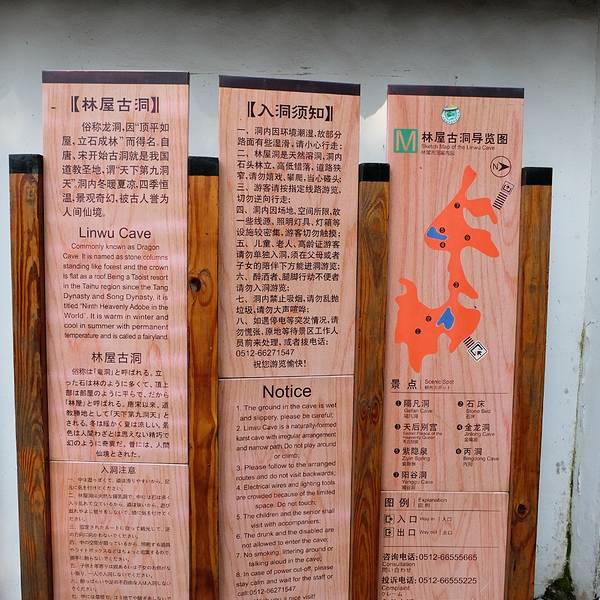 【林屋古洞】
俗称龙洞,因"顶平如
屋,立石成林"而得名。自
唐、宋开始古洞就是我国
道教圣地,谓"天下第九洞
天",洞内冬暖夏凉,四季恒
温,景观奇幻,被古人誉为
人间仙境。
Linwu Cave
Commonly known as Dragon
Cave. It is named as stone columns
standing like forest and the crown
is flat as a roof.Being a Taoist resort
in the Taihu region since the Tang
Dynasty and Song Dynasty, it is
titled "Ninth Heavenly Adobe in the
World". It is warm in winter and
cool in summer with permanent
temperature and is called a fairyland.
林屋古洞
俗称は「竜洞」と呼ばれる。立
った石は林のように多くて、頂上
部は部屋のように平らで、だから
「林屋」と呼ばれる。唐宋以来、道
教勝地として「天下第九洞天」と
される。冬は暖かく夏は涼しい、景
色は人間わざとは思えない精巧で
幻のように奇異だ。昔には、人間
仙境とされた。
入洞注意
【入洞须知】
一、洞内因环境潮湿,故部分
路面有些湿滑,请小心行走;
二、林屋洞是天然溶洞,洞内
石头林立,高低错落,道路狭
窄,请勿嬉戏、攀爬,当心碰头;
三、游客请按指定线路游览,
切勿逆向行走;
四、洞内因场地、空间所限,故
一些线源、照明灯具、灯箱等
设施较密集,游客切勿触摸;
五、儿童、老人、高龄证游客
请勿单独入洞,须在父母或者
子女的陪伴下方能进洞游览;
六、醉酒者、腿脚行动不便者
请勿入洞游览;
七、洞内禁止吸烟,请勿乱抛
垃圾,请勿大声喧哗;
八、如遇停电等突发情况,请
勿慌张,原地等待景区工作人
员前来处理,或者拨电话:
0512-66271547
祝您游览愉快!
Notice
1. The ground in the cave is wet
and slippery, please be careful;
2. Linwu Cave is a naturally-formed
karst cave with irregular arrangement
and narrow path. Do not play around
or climb;
3. Please follow to the arranged
routes and do not visit backwards;
4. Electrical wires and lighting tools
are crowded because of the limited
space. Do not touch;
5. The children and the senior shall
visit with accompaniers;
6. The drunk and the disabled are
not allowed to enter the cave;
7. No smoking, littering around or
talking aloud in the cave;
8. In case of power cut-off, please
stay calm and wait for the staff or
call:0512-66271547
M 林屋古洞导览图
Sketch Map of the Linwu Cave
N
景 点 Scenic Spot
1 隔凡洞
Gefan Cave
2 石床
Stone Bed
石床
3 天后别宫
4 金龙洞
Jinlong Cave
金竜洞
5 紫隐泉
Ziyin Spring
6 丙洞
Bingdong Cave
丙洞
7 阳谷洞
Yanggu Cave
图 例 Explanation
入口 Way in 入口
出口 Way out 出口
咨询电话:0512-66555665
Consultation
問い合わせ
投诉电话:0512-66555225
Complaint